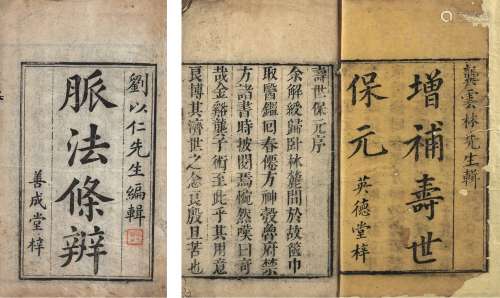 劉以仁先生編輯
脈法條辨
善成堂梓
龔雲林先生輯
增補壽世
保元
英德堂梓
壽世保元序
余解綬歸卧林麓間於故篋巾
取醫鑑回春僊方神彀魯府禁
方諸書時披閱焉惋然嘆曰奇
哉金谿龔子術至此乎其用意
良博其濟世之念良殷且苦也